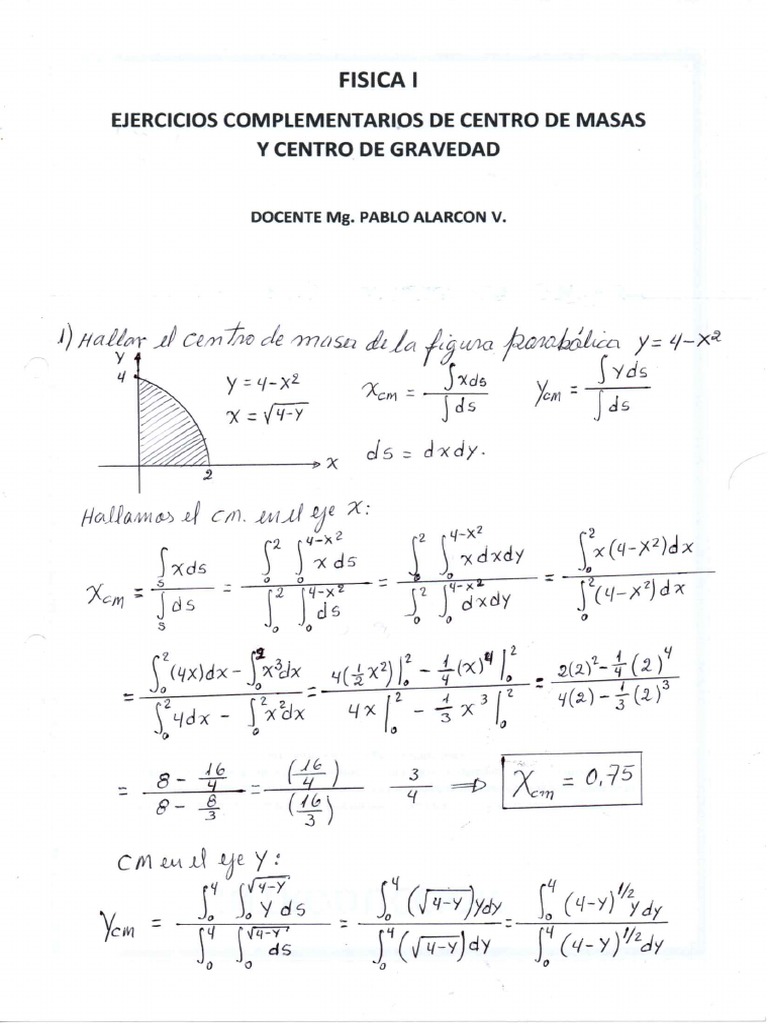 FISICA I
EJERCICIOS COMPLEMENTARIOS DE CENTRO DE MASAS
Y CENTRO DE GRAVEDAD
DOCENTE Mg. PABLO ALARCON V.
1) Hallar el centro de masa de la figura parabólica y = 4 - x²
Y
4
2
X
Y = 4 - X²
X = √(4-Y)
X_cm = ∫xds / ∫ds
Y_cm = ∫Yds / ∫ds
ds = dxdy.
Hallamos el cm. en el eje X:
X_cm = ∫_s xds / ∫_s ds = ∫_0^2 ∫_0^(4-x²) x ds / ∫_0^2 ∫_0^(4-x²) ds = ∫_0^2 ∫_0^(4-x²) x dxdy / ∫_0^2 ∫_0^(4-x²) dxdy = ∫_0^2 x(4-X²)dx / ∫_0^2 (4-X²)dx
= (∫_0^2 (4x)dx - ∫_0^2 x³dx) / (∫_0^2 4dx - ∫_0^2 x²dx) = (4(1/2 x²)|_0^2 - 1/4 (x)^4|_0^2) / (4x|_0^2 - 1/3 x³|_0^2) = (2(2)² - 1/4 (2)^4) / (4(2) - 1/3 (2)³)
= (8 - 16/4) / (8 - 8/3) = (16/4) / (16/3) 3/4 ⇒ X_cm = 0,75
CM en el eje Y:
Y_cm = ∫_0^4 ∫_0^√(4-Y) Y ds / ∫_0^4 ∫_0^√(4-Y) ds = ∫_0^4 (√(4-Y))Ydy / ∫_0^4 (√(4-Y))dy = ∫_0^4 (4-Y)^(1/2) Y dy / ∫_0^4 (4-Y)^(1/2) dy